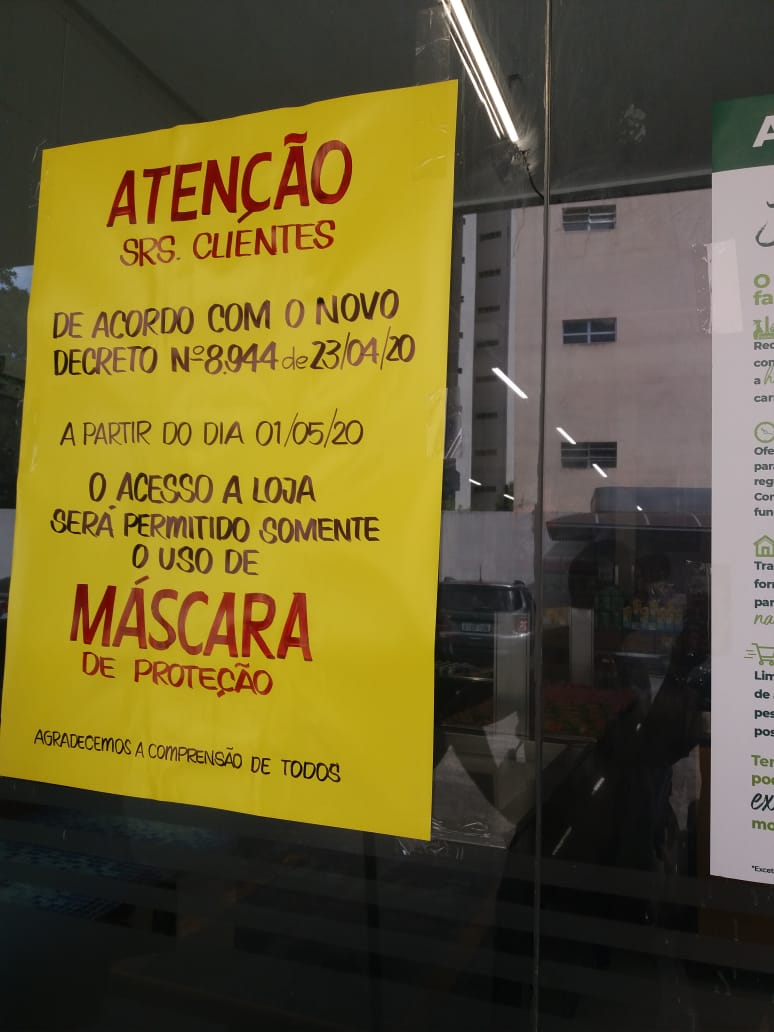 ATENÇÃO
SRS. CLIENTES
DE ACORDO COM O NOVO
DECRETO Nº 8.944 de 23/04/20
A PARTIR DO DIA 01/05/20
O ACESSO A LOJA
SERÁ PERMITIDO SOMENTE
O USO DE
MÁSCARA
DE PROTEÇÃO
AGRADECEMOS A COMPRENSÃO DE TODOS
A
O
fa
Rec
con
a
car
Ofe
para
reg
Cor
fun
Tra
for
par
na
Lim
de
pes
pos
Ter
pod
ex
mo
*Excet